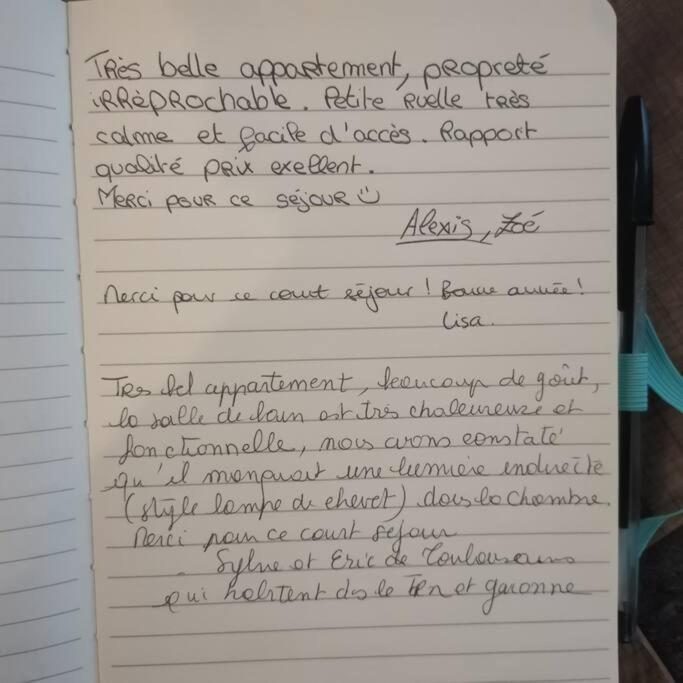 Très belle appartement, propreté
irrèprochable. Petite ruelle très
calme et facile d'accès. Rapport
qualité prix exellent.
Merci pour ce séjour ☺
Alexis, Zoé
Merci pour ce court séjour ! Bonne année !
Lisa.
Tres bel appartement, beaucoup de goût,
la salle de bain est très chaleureuse et
fonctionnelle, nous avons constaté
qu'il manquait une lumière indirecte
(style lampe de chevet) dans la chambre.
Merci pour ce court séjour
Sylvie et Eric de
qui habitent ds le Tarn et garonne